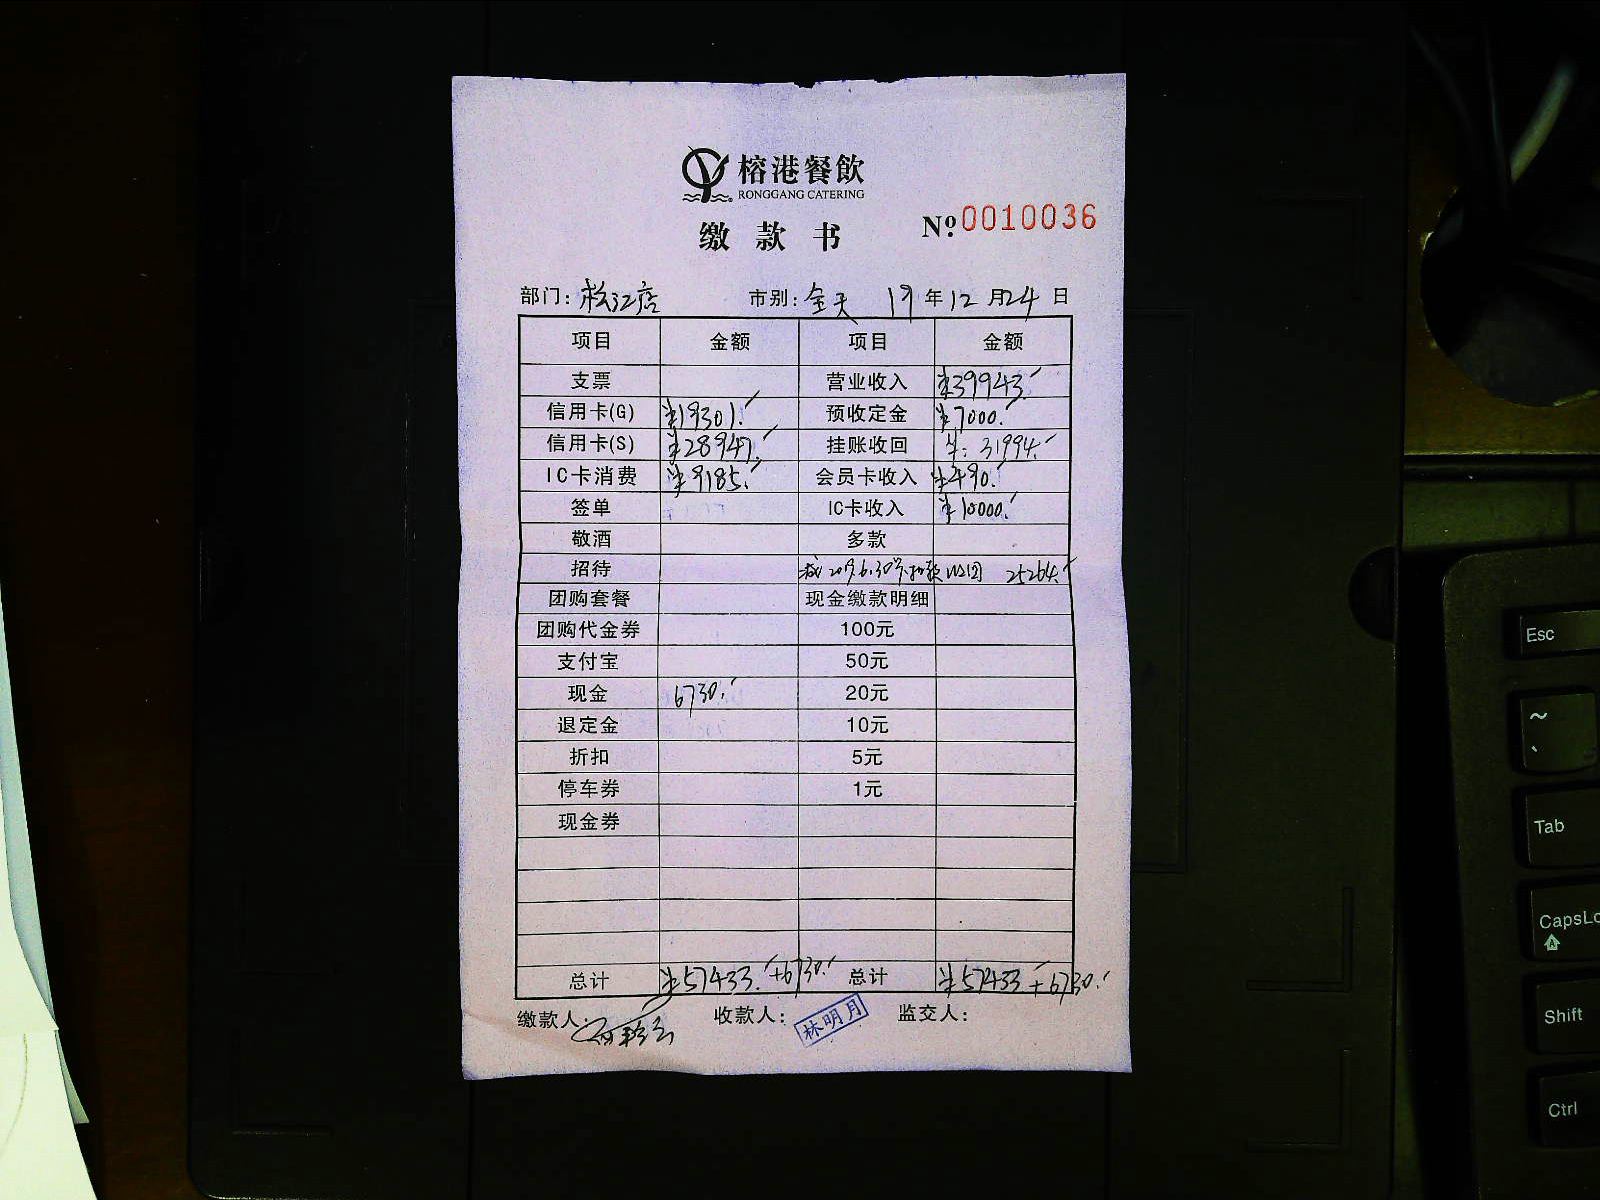 榕港餐飲
RONGGANG CATERING
缴款书 Nº 0010036
部门: 松江店 市别: 全天 19年12月24日
项目 金额 项目 金额
支票 营业收入 ¥39943.
信用卡(G) ¥19301. 预收定金 ¥7000.
信用卡(S) ¥28947. 挂账收回 ¥: 31994.
IC卡消费 ¥9185. 会员卡收入 ¥490.
签单 IC卡收入 ¥10000.
敬酒 多款
招待 25264.
团购套餐 现金缴款明细
团购代金券 100元
支付宝 50元
现金 6730. 20元
退定金 10元
折扣 5元
停车券 1元
现金券
总计 ¥57433.+6730. 总计 ¥57433+6730.
缴款人: 收款人: 林明月 监交人:
Esc
~
、
Tab
CapsLo
A
Shift
Ctrl